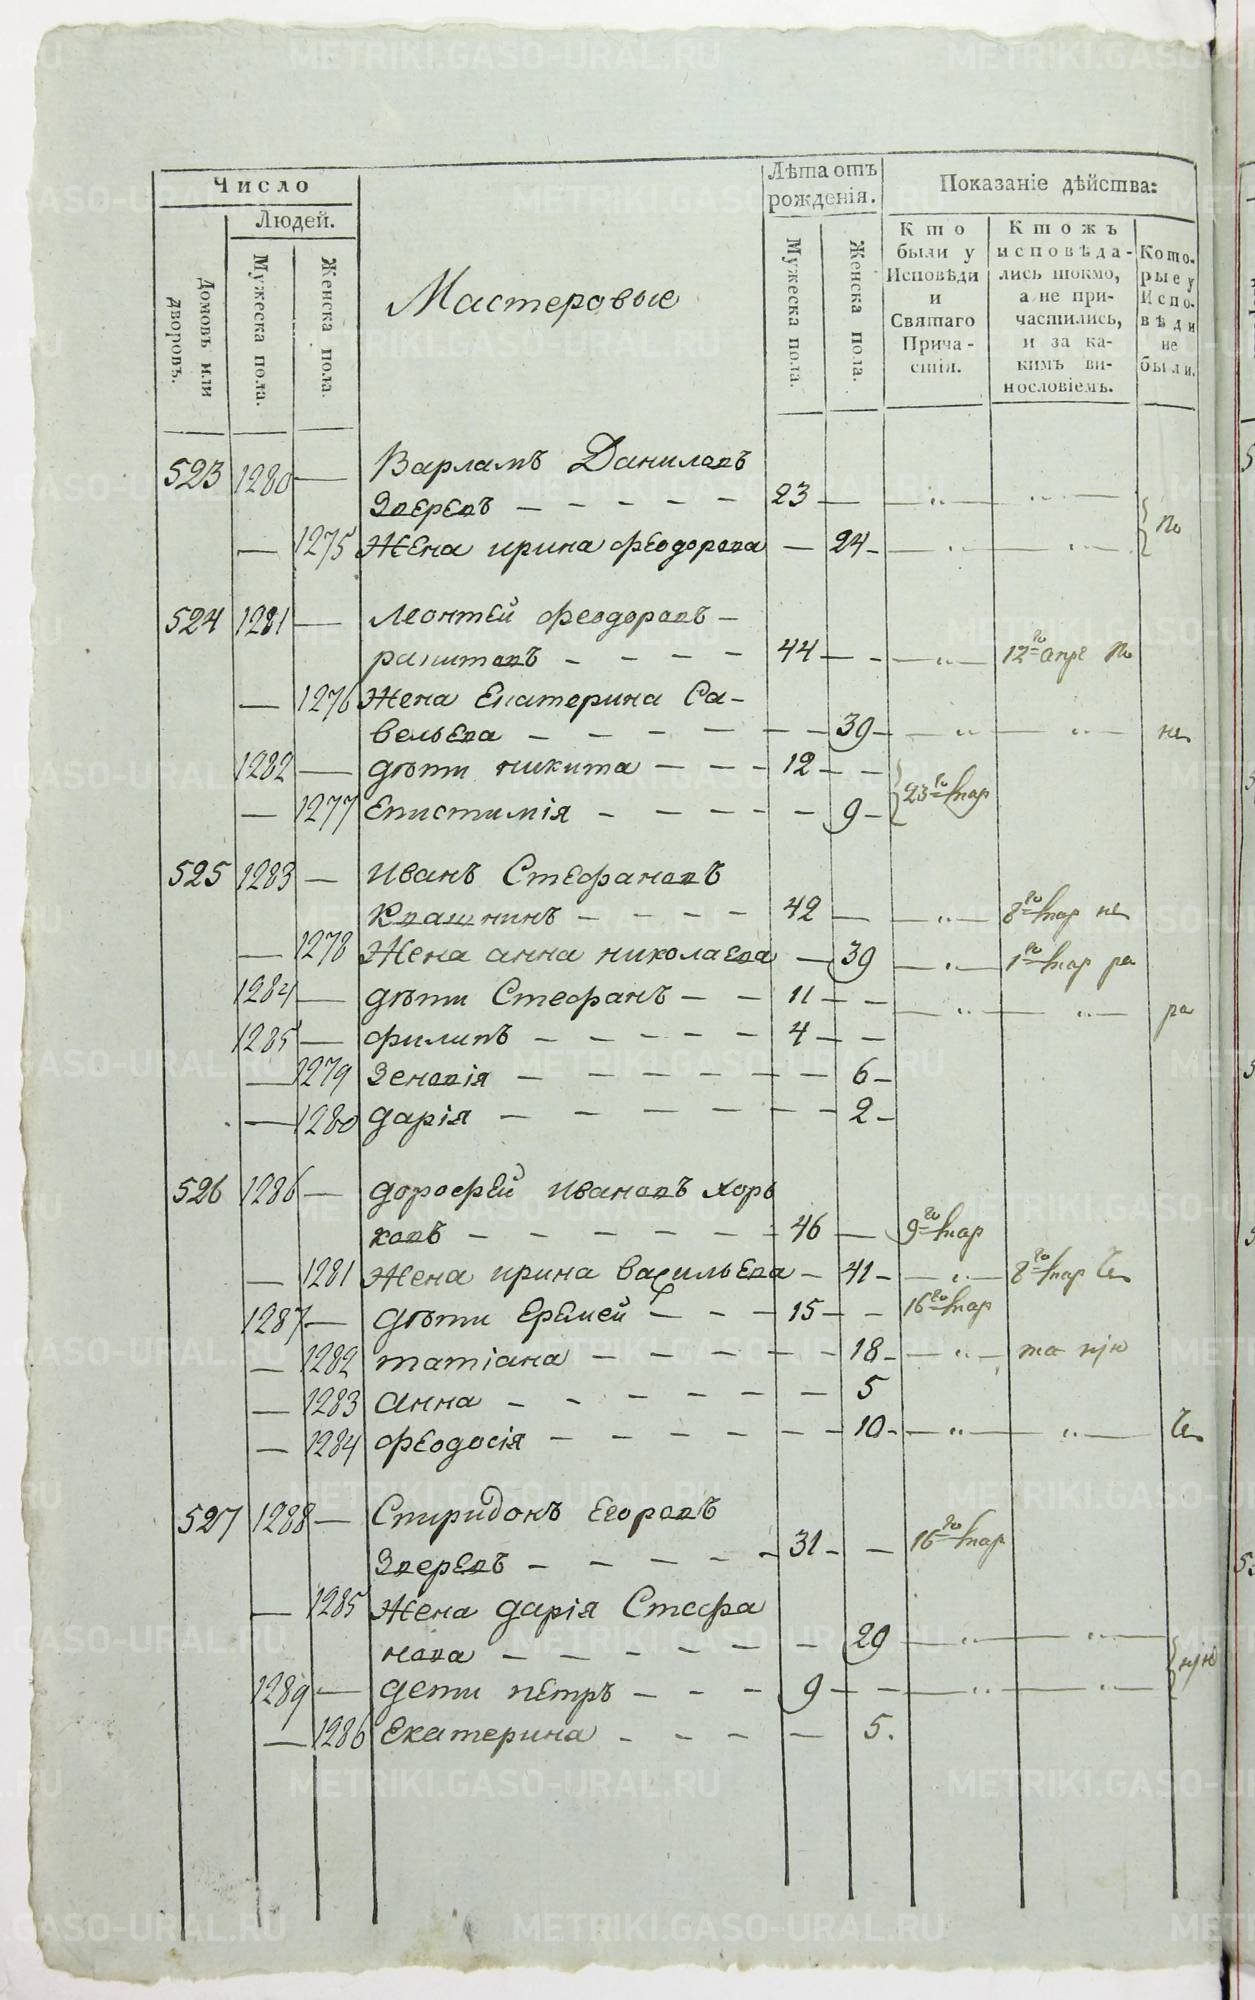 Число
Людей.
Домовъ или дворовъ.
Мужеска пола.
Женска пола.
Мастеровые
Лѣта отъ рожденія.
Мужеска пола.
Женска пола.
Показаніе дѣйства:
Кто были у Исповѣди и Святаго Причастія.
Ктожъ исповѣдались токмо, а не причастились, и за какимъ винословіемъ.
Которые у Исповѣди не были.
523 1280 — Варламъ Даниловъ
Зверевъ — — — — — 23 — — „ — — „ —
— 1275 Жена ирина феодорова — 24 — — „ — — „ — по
524 1281 — Леонтей феодоровъ —
— — — — 44 — — — „ — 12го апре по
— 1276 Жена Екатерина Са-
вельева — — — — — — 39 — — „ — — „ — не
1282 — дѣти никита — — — 12 — —
— 1277 Епистимія — — — — — 9 — 23го мар
525 1283 — Иванъ Стефановъ
Квашнинъ — — — — 42 — — „ — 8го мар не
— 1278 Жена анна николаева — 39 — „ — 1го мар ра
1284 — дѣти Стефанъ — — 11 — — — „ — — „ — ра
1285 — филипъ — — — — — 4 — —
— 1279 Зеновія — — — — — — 6 —
— 1280 дарія — — — — — — 2 —
526 1286 — дорофей Ивановъ хорь
ковъ — — — — — — 46 — 9го мар
— 1281 Жена ирина васильева — 41 — — „ — 8го мар
1287 — дѣти Еремей — — — 15 — — 16го мар
— 1282 татіана — — — — — 18 — — „ —
— 1283 анна — — — — — — 5
— 1284 феодосія — — — — — — 10 — — „ — — „ —
527 1288 — Спиридонъ Егоровъ
Зверевъ — — — — — 31 — — 16го мар
— 1285 Жена дарія Стефа
нова — — — — — — 29 — „ — — „ —
1289 — дети петръ — — — 9 — — — „ — — „ —
— 1286 Екатерина — — — — — 5.
METRIKI.GASO-URAL.RU